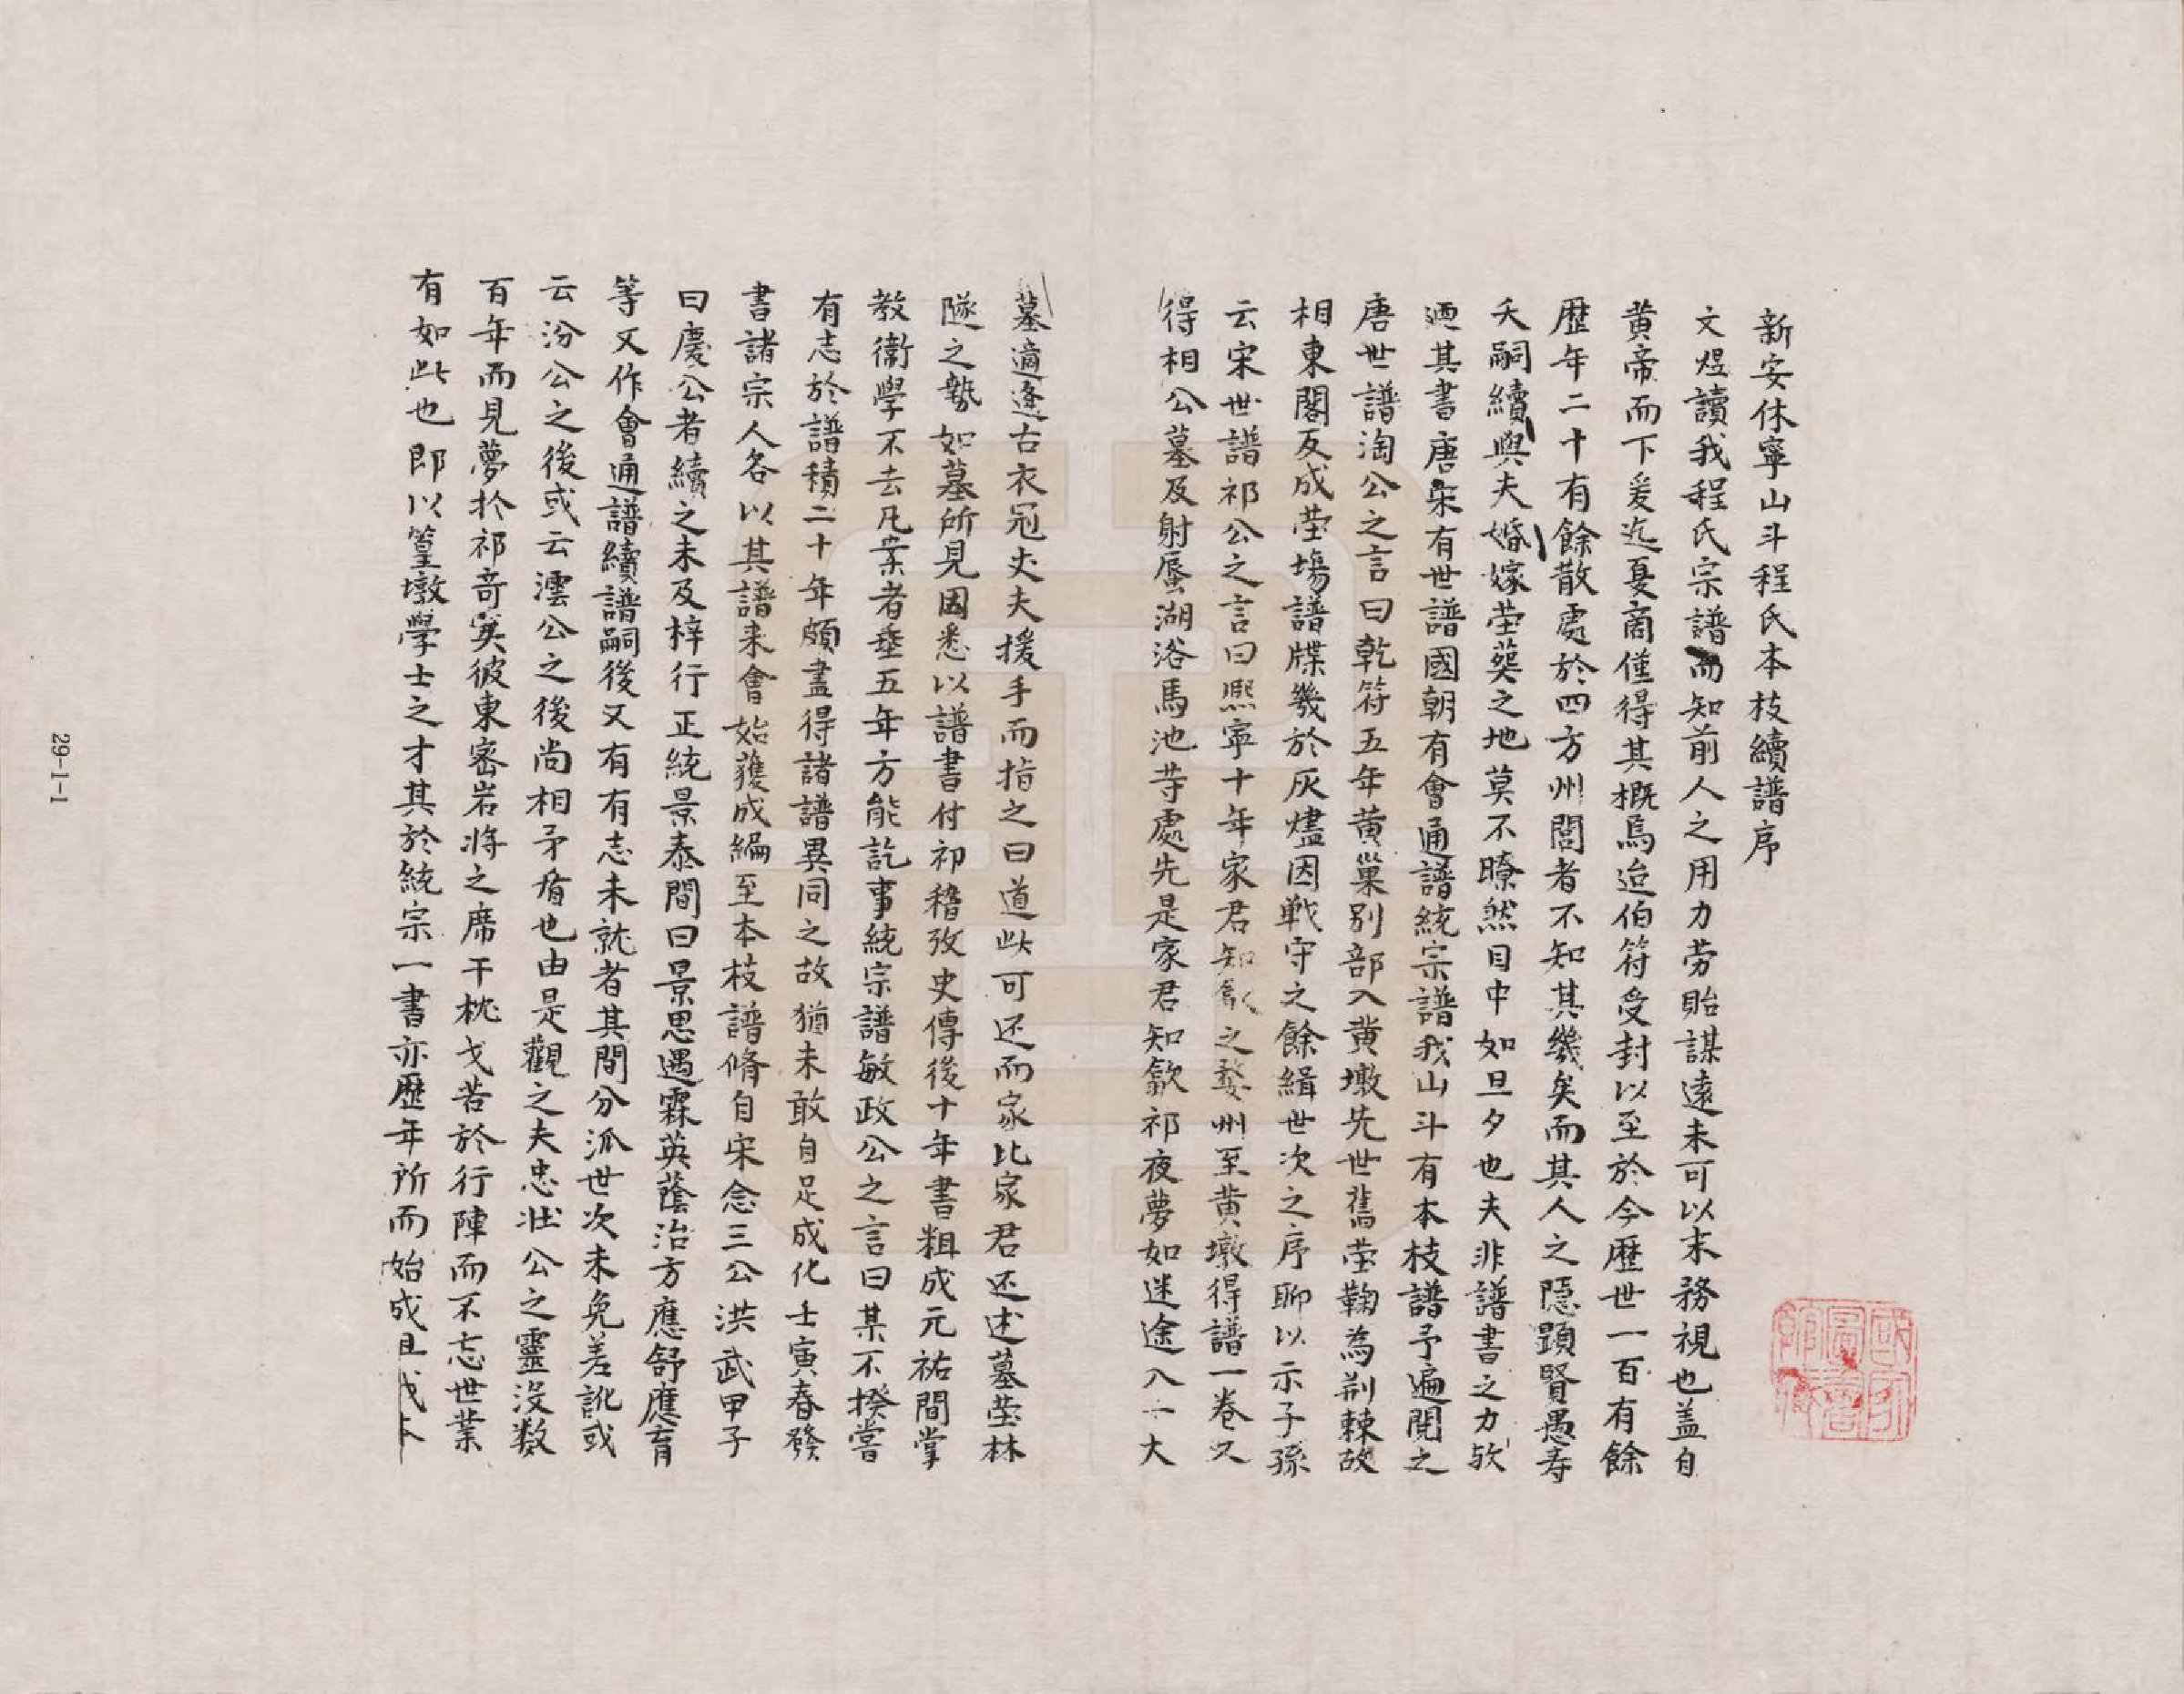 新安休寧山斗程氏本枝續譜序
文煜讀我程氏宗譜而知前人之用力劳貽謀遠未可以末務視也盖自
黄帝而下爰迄夏商僅得其概焉迨伯符受封以至於今歷世一百有餘
歷年二十有餘散處於四方州閭者不知其幾矣而其人之隱顕賢愚寿
夭嗣續與夫婚嫁茔葵之地莫不瞭然目中如旦夕也夫非譜書之力欤
迺其書唐宋有世譜國朝有會通譜統宗譜我山斗有本枝譜予遍閱之
唐世譜淘公之言曰乾符五年黄巢别部入黄墩先世舊茔鞠為荆棘故
相東閣反成茔塲譜牒幾於灰燼因戦守之餘緝世次之序聊以示子孫
云宋世譜祁公之言曰熙寧十年家君知歙之婺州至黄墩得譜一卷又
得相公墓及射蜃湖浴馬池等處先是家君知歙祁夜夢如迷途入一大
墓適逢古衣冠丈夫援手而指之曰道此可还而家比家君还述墓茔林
隧之勢如墓所見因悉以譜書付祁稽攷史傳後十年書粗成元祐間掌
教衞學不去几案者垂五年方能訖事統宗譜敏政公之言曰某不揆嘗
有志於譜積二十年頗盡得諸譜異同之故猶未敢自足成化壬寅春發
書諸宗人各以其譜来會始獲成編至本枝譜脩自宋念三公洪武甲子
曰慶公者續之未及梓行正統景泰間曰景思遇霖英蔭治方應舒應育
等又作會通譜續譜嗣後又有有志未就者其間分派世次未免差訛或
云汾公之後或云澐公之後尚相矛盾也由是觀之夫忠壮公之靈没数
百年而見夢於祁竒矣彼東密岩将之席干枕戈苦於行陣而不忘世業
有如此也即以篁墩學士之才其於統宗一書亦歷年所而始成且
國家圖書館藏
29-1-1